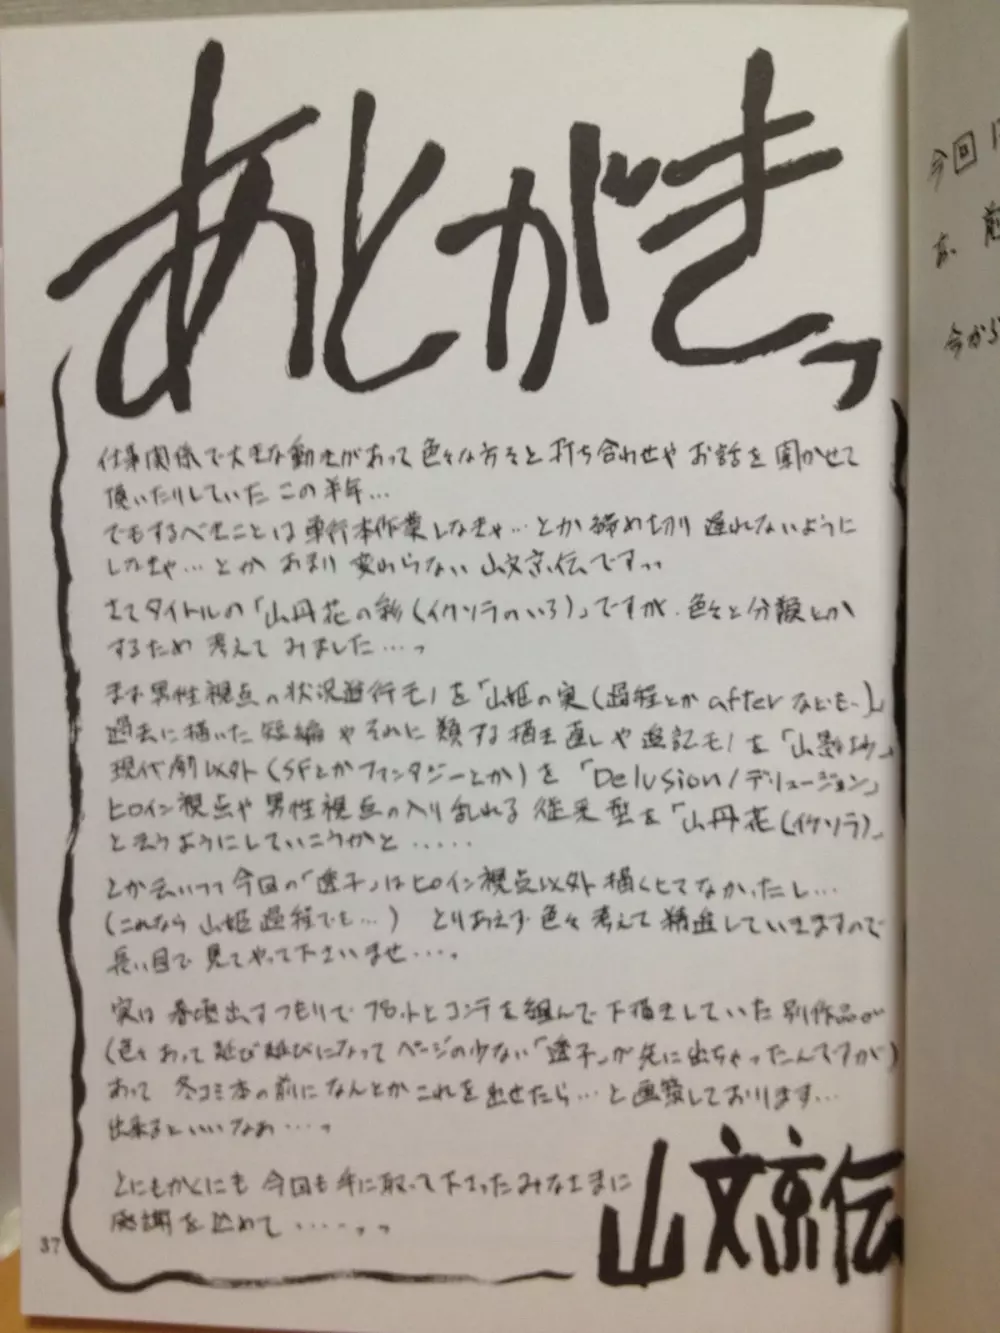 あとがきっ
仕事関係で大きな動きがあって色々な方々と打ち合わせやお話を聞かせて
頂いたりしていたこの半年…
でもするべきことは単行本作業しなきゃ…とか締め切り遅れないように
しなきゃ…とかあまり変わらない山文京伝ですっっ
さてタイトルの「山丹花の彩(イクソラのいろ)」ですが、色々と分類とか
するため考えてみました…っ
まず男性視点の状況進行モノを「山姫の実(過程とかafterなども…)」
過去に描いた短編やそれに類する描き直しや追記モノを「山影抄」
現代劇以外(SFとかファンタジーとか)を「Delusion/デリュージョン」
ヒロイン視点や男性視点の入り乱れる従来型を「山丹花(イクソラ)」
と云うようにしていこうかと.....
とか云いつつ今回の「透子」はヒロイン視点以外描くヒマなかったし…
(これなら山姫過程でも…) とりあえず色々考えて精進していきますので
長い目で見てやって下さいませ…。
実は春頃出すつもりでプロットとコンテを組んで下描きしていた別作品が
(色々あって延び延びになってページの少ない「透子」が先に出ちゃったんですが)
あって 冬コミ本の前になんとかこれを出せたら…と画策しております…
出来るといいなあ…っ
とにもかくにも今回も手に取って下さったみなさまに
感謝を込めて……っっ
山文京伝
37
今回
今から